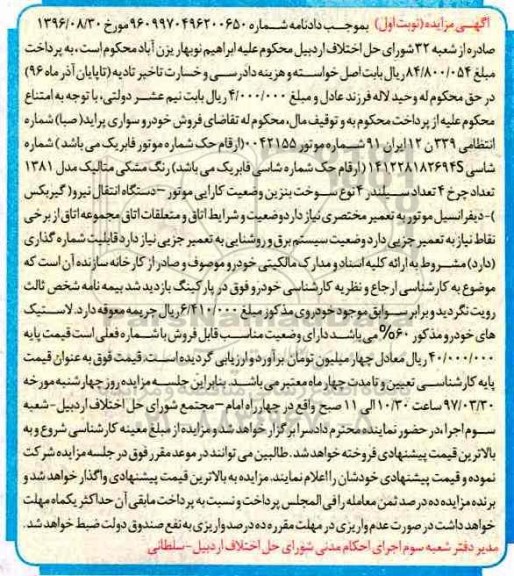 آگهی مزایده (نوبت اول) بموجب دادنامه شماره ۹۶۰۹۹۷۰۴۹۶۲۰۰۶۵۰ مورخ ۱۳۹۶/۰۸/۳۰
صادره از شعبه ۳۲ شورای حل اختلاف اردبیل محکوم علیه ابراهیم نوبهار یزن آباد محکوم است، به پرداخت
مبلغ ۸۴/۸۰۰/۰۵۴ ریال بابت اصل خواسته و هزینه دادرسی و خسارت تاخیر تادیه (تا پایان آذر ماه ۹۶)
در حق محکوم له وحید لاله فرزند عادل و مبلغ ۴/۰۰۰/۰۰۰ ریال بابت نیم عشر دولتی، با توجه به امتناع
محکوم علیه از پرداخت محکوم به و توقیف مال، محکوم له تقاضای فروش خودرو سواری پراید (صبا) شماره
انتظامی ۳۳۹ ن ۱۲ ایران ۹۱ شماره موتور ۰۰۴۲۱۵۵ (ارقام حک شماره موتور فابریک می باشد) شماره
شاسی ۱۴۱۲۲۸۱۸۲۶۹۴S (ارقام حک شماره شاسی فابریک می باشد) رنگ مشکی متالیک مدل ۱۳۸۱
تعداد چرخ ۴ تعداد سیلندر ۴ نوع سوخت بنزین وضعیت کارایی موتور – دستگاه انتقال نیرو (گیربکس
)-دیفرانسیل موتور به تعمیر مختصری نیاز دارد وضعیت و شرایط اتاق و متعلقات اتاق مجموعه اتاق از برخی
نقاط نیاز به تعمیر جزیی دارد وضعیت سیستم برق و روشنایی به تعمیر جزیی نیاز دارد قابلیت شماره گذاری
(دارد) مشروط به ارائه کلیه اسناد و مدارک مالکیتی خودرو موصوف و صادر از کارخانه سازنده آن است که
موضوع به کارشناسی ارجاع و نظریه کارشناسی خودرو فوق در پارکینگ بازدید شد بیمه نامه شخص ثالث
رویت نگردید و برابر سوابق موجود خودروی مذکور مبلغ ۶/۴۱۰/۰۰۰ ریال جریمه معوقه دارد. لاستیک
های خودرو مذکور ۶۰% می باشد دارای وضعیت مناسب قابل فروش با شماره فعلی است قیمت پایه
۴۰/۰۰۰/۰۰۰ ریال معادل چهار میلیون تومان برآورد و ارزیابی گردیده است. قیمت فوق به عنوان قیمت
پایه کارشناسی تعیین و تا مدت چهار ماه معتبر می باشد. بنابراین جلسه مزایده روز چهارشنبه مورخه
۹۷/۰۳/۳۰ ساعت ۱۰/۳۰ الی ۱۱ صبح واقع در چهار راه امام – مجتمع شورای حل اختلاف اردبیل – شعبه
سوم اجراء، در حضور نماینده محترم دادسرا برگزار خواهد شد و مزایده از مبلغ معینه کارشناسی شروع و به
بالاترین قیمت پیشنهادی فروخته خواهد شد. طالبین می توانند در موعد مقرر فوق در جلسه مزایده شرکت
نموده و قیمت پیشنهادی خودشان را اعلام نمایند. مزایده به بالاترین قیمت پیشنهادی واگذار خواهد شد و
برنده مزایده ده درصد ثمن معامله را فی المجلس پرداخت و نسبت به پرداخت مابقی آن حداکثر یکماه مهلت
خواهد داشت در صورت عدم واریزی در مهلت مقرره ده درصد واریزی به نفع صندوق دولت ضبط خواهد شد.
مدیر دفتر شعبه سوم اجرای احکام مدنی شورای حل اختلاف اردبیل - سلطانی